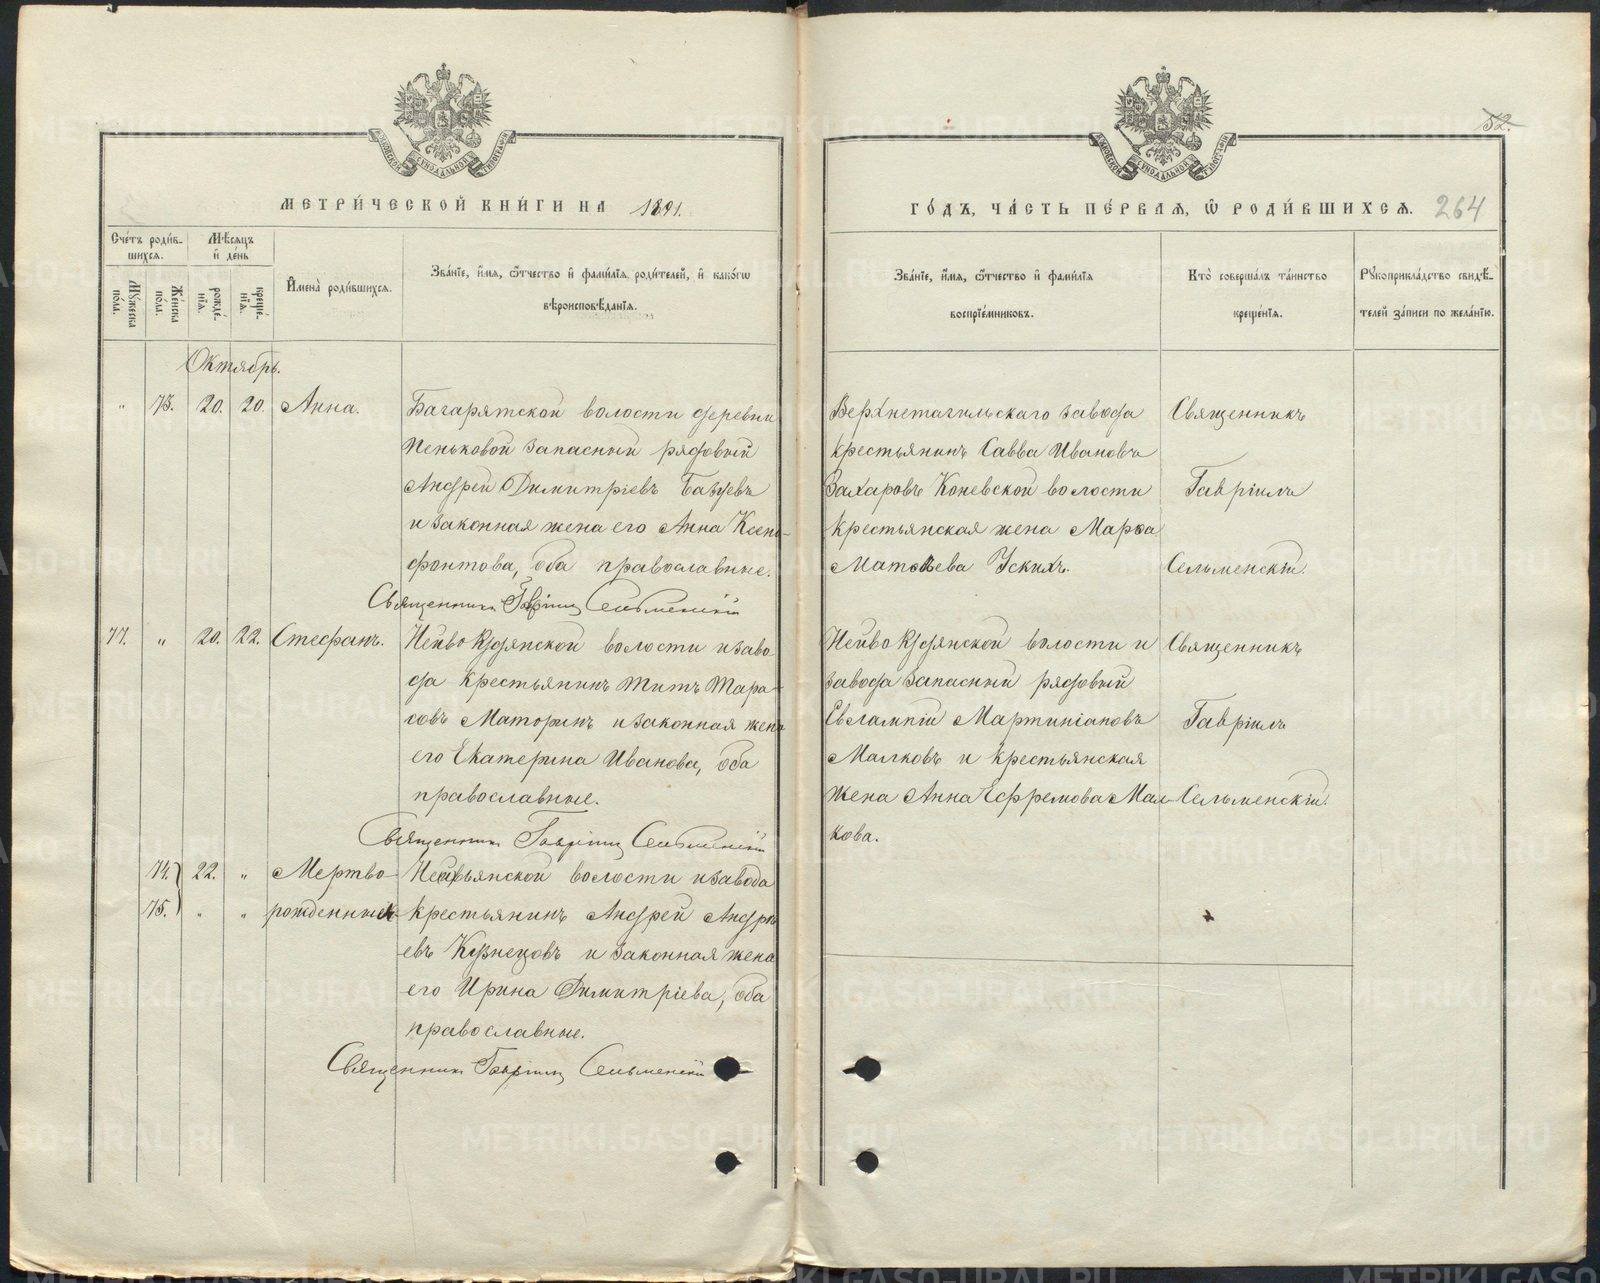 52.
МЕТРИ́ЧЕСКОЙ КНИ́ГИ НА 1891.
ГО́ДЪ, ЧА́СТЬ ПЕ́РВАѦ, Ѡ РОДИ́ВШИХСѦ. 264
Сче́тъ роди́в-
шихся.
Мѣ́сяцъ
и̂ де́нь
Му́жеска
по́ла.
Же́нска
по́ла.
рожде́-
нїѧ.
креще́-
нїѧ.
И̂мена̀ роди́вшихся.
Зва́нїе, и̂́мѧ, ѻ҆́тчество и̂ фами́лїѧ роди́телей, и̂ како́гѡ
вѣроисповѣ́данїѧ.
Зва́нїе, и̂́мѧ, ѻ҆́тчество и̂ фами́лїѧ
воспрїе́мниковъ.
Кто̀ соверша́лъ та́инство
креще́нїѧ.
Рукоприкла́дство свидѣ́-
телей за́писи по жела́нїю.
Октябрь.
" 73. 20. 20. Анна.
Багарятской волости деревни
Пеньковой запасный рядовый
Андрей Димитріевъ
и законная жена его Анна Ксено-
фонтова, оба православные.
Священникъ Гавріилъ Сельменскій
Верхнетагильскаго завода
крестьянинъ Савва Ивановъ
Захаровъ Коневской волости
крестьянская жена Марѳа
Матвѣева Ускихъ.
Священникъ
Гавріилъ
Сельменскій.
77. " 20. 22. Стефанъ.
Нейво Рудянской волости и заво
да крестьянинъ Титъ Тара-
совъ Маторинъ и законная жена
его Екатерина Иванова, оба
православные.
Священникъ Гавріилъ Сельменскій
Нейво Рудянской волости и
завода запасный рядовый
Евлампій Мартиніановъ
Малковъ и крестьянская
жена Анна Ефремова Мал-
кова.
Священникъ
Гавріилъ
Сельменскій.
74. 22. " Мертво-
75. " " рожденные
Невьянской волости и завода
крестьянинъ Андрей Андре
евъ Кузнецовъ и законная жена
его Ирина Димитріева, оба
православные.
Священникъ Гавріилъ Сельменскій
METRIKI.GASO-URAL.RU